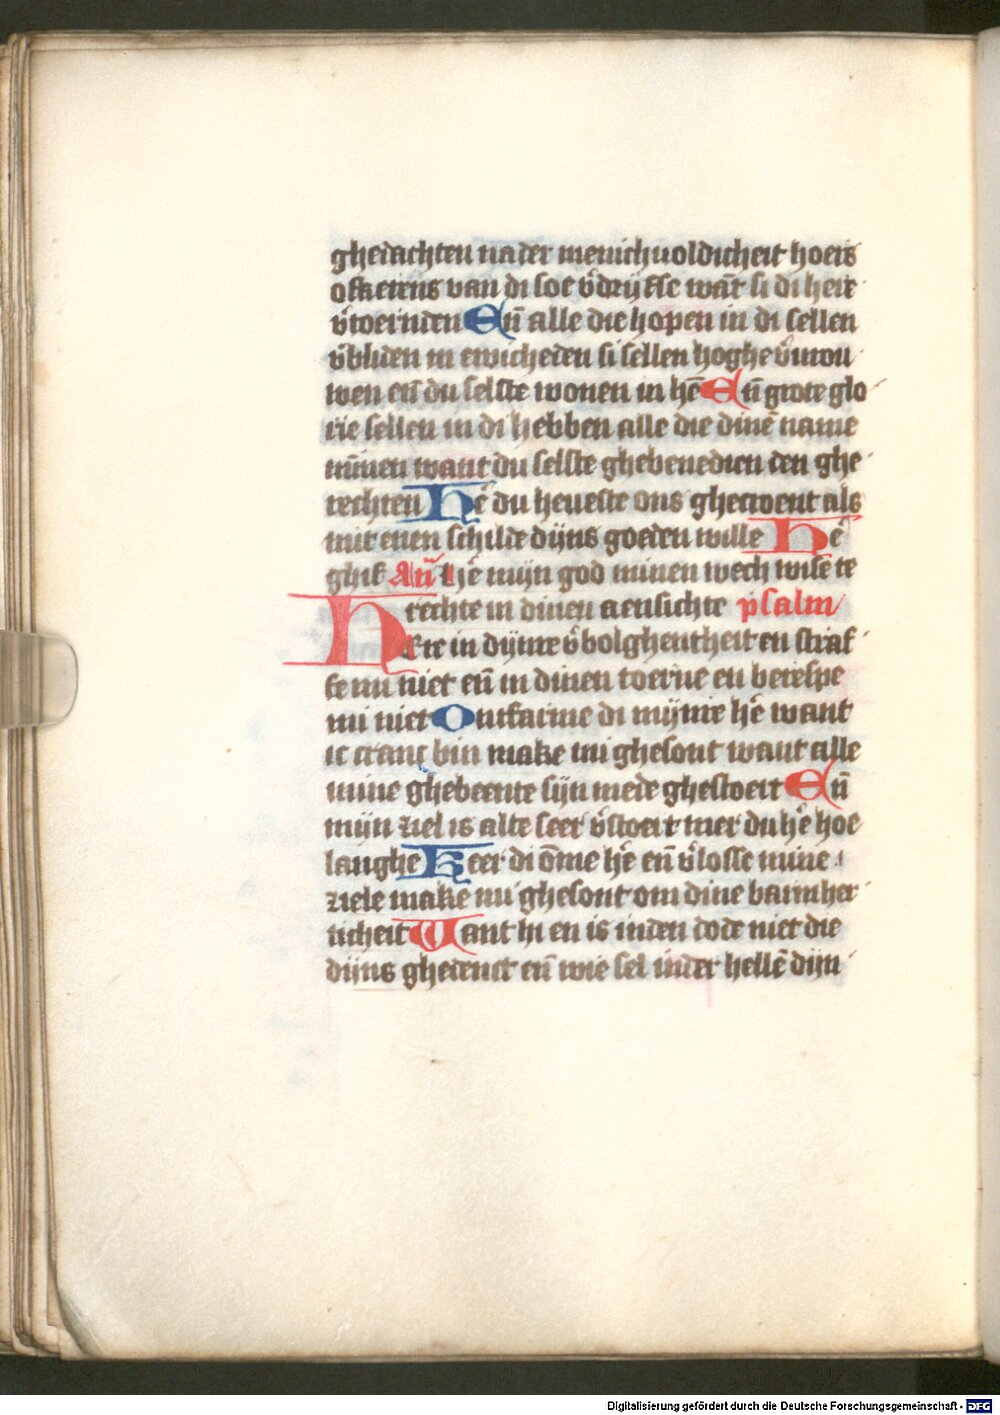 ghedachten na der menichuoldicheit hoers
ofkeirens van di soe v̄drijfse wāt si di heir
v̄toernden Eñ alle die hopen in di sellen
v̄bliden in ewicheden si sellen hoghe v̄wou
wen eñ du selste wonen in hē Eñ grote glo
rie sellen in di hebben alle die dinē name
mīnen want du selste ghebenedien den ghe
rechten He᷑ du heueste ons ghecroent als
mit enen schilde dijns goeden wille He᷑
ghif Añ He᷑ mijn god minen wech wise te
rechte in dinen aensichte psalm
HEre in dijnre v̄bolghentheit en straf
fe mi niet eñ in dinen toerne en berespe
mi niet Ontfarme di mijnre he᷑ want
ic cranc bin make mi ghesont want alle
mine ghebeente sijn mede ghestoert Eñ
mijn ziel is alte seer v̄stoert mer du he᷑ hoe
langhe Keer di ōme he᷑ eñ v̄losse mine
ziele make mi ghesont om dine barmher
ticheit Want hi en is inden dode niet die
dijns ghedenct eñ wie sel inder hellē dijn
Digitalisierung gefördert durch die Deutsche Forschungsgemeinschaft - DFG